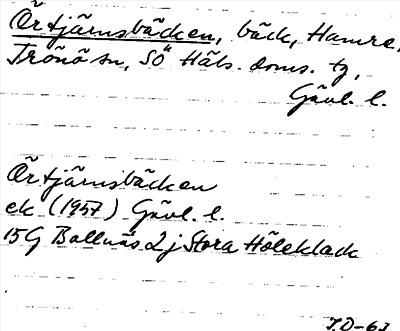 Örtjärnsbäcken, bäck, Hamre,
Trönö sn, SÖ Häls. doms. tg,
Gävl. l.
Örtjärnsbäcken
ek (1957) Gävl. l.
15G Bollnäs 2j Stora Höleklack
J.D-63